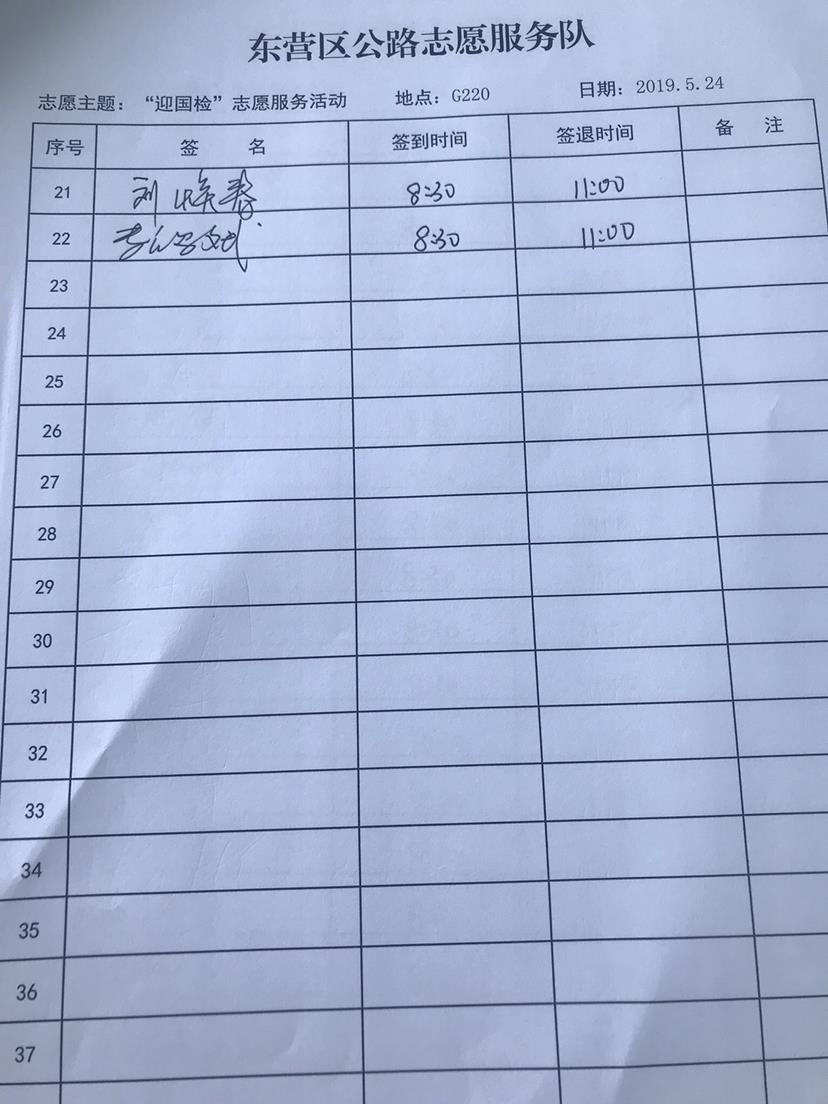 东营区公路志愿服务队
志愿主题：“迎国检”志愿服务活动 地点：G220 日期：2019.5.24
序号 签 名 签到时间 签退时间 备 注
21 刘 8:30 11:00
22 8:30 11:00
23
24
25
26
27
28
29
30
31
32
33
34
35
36
37